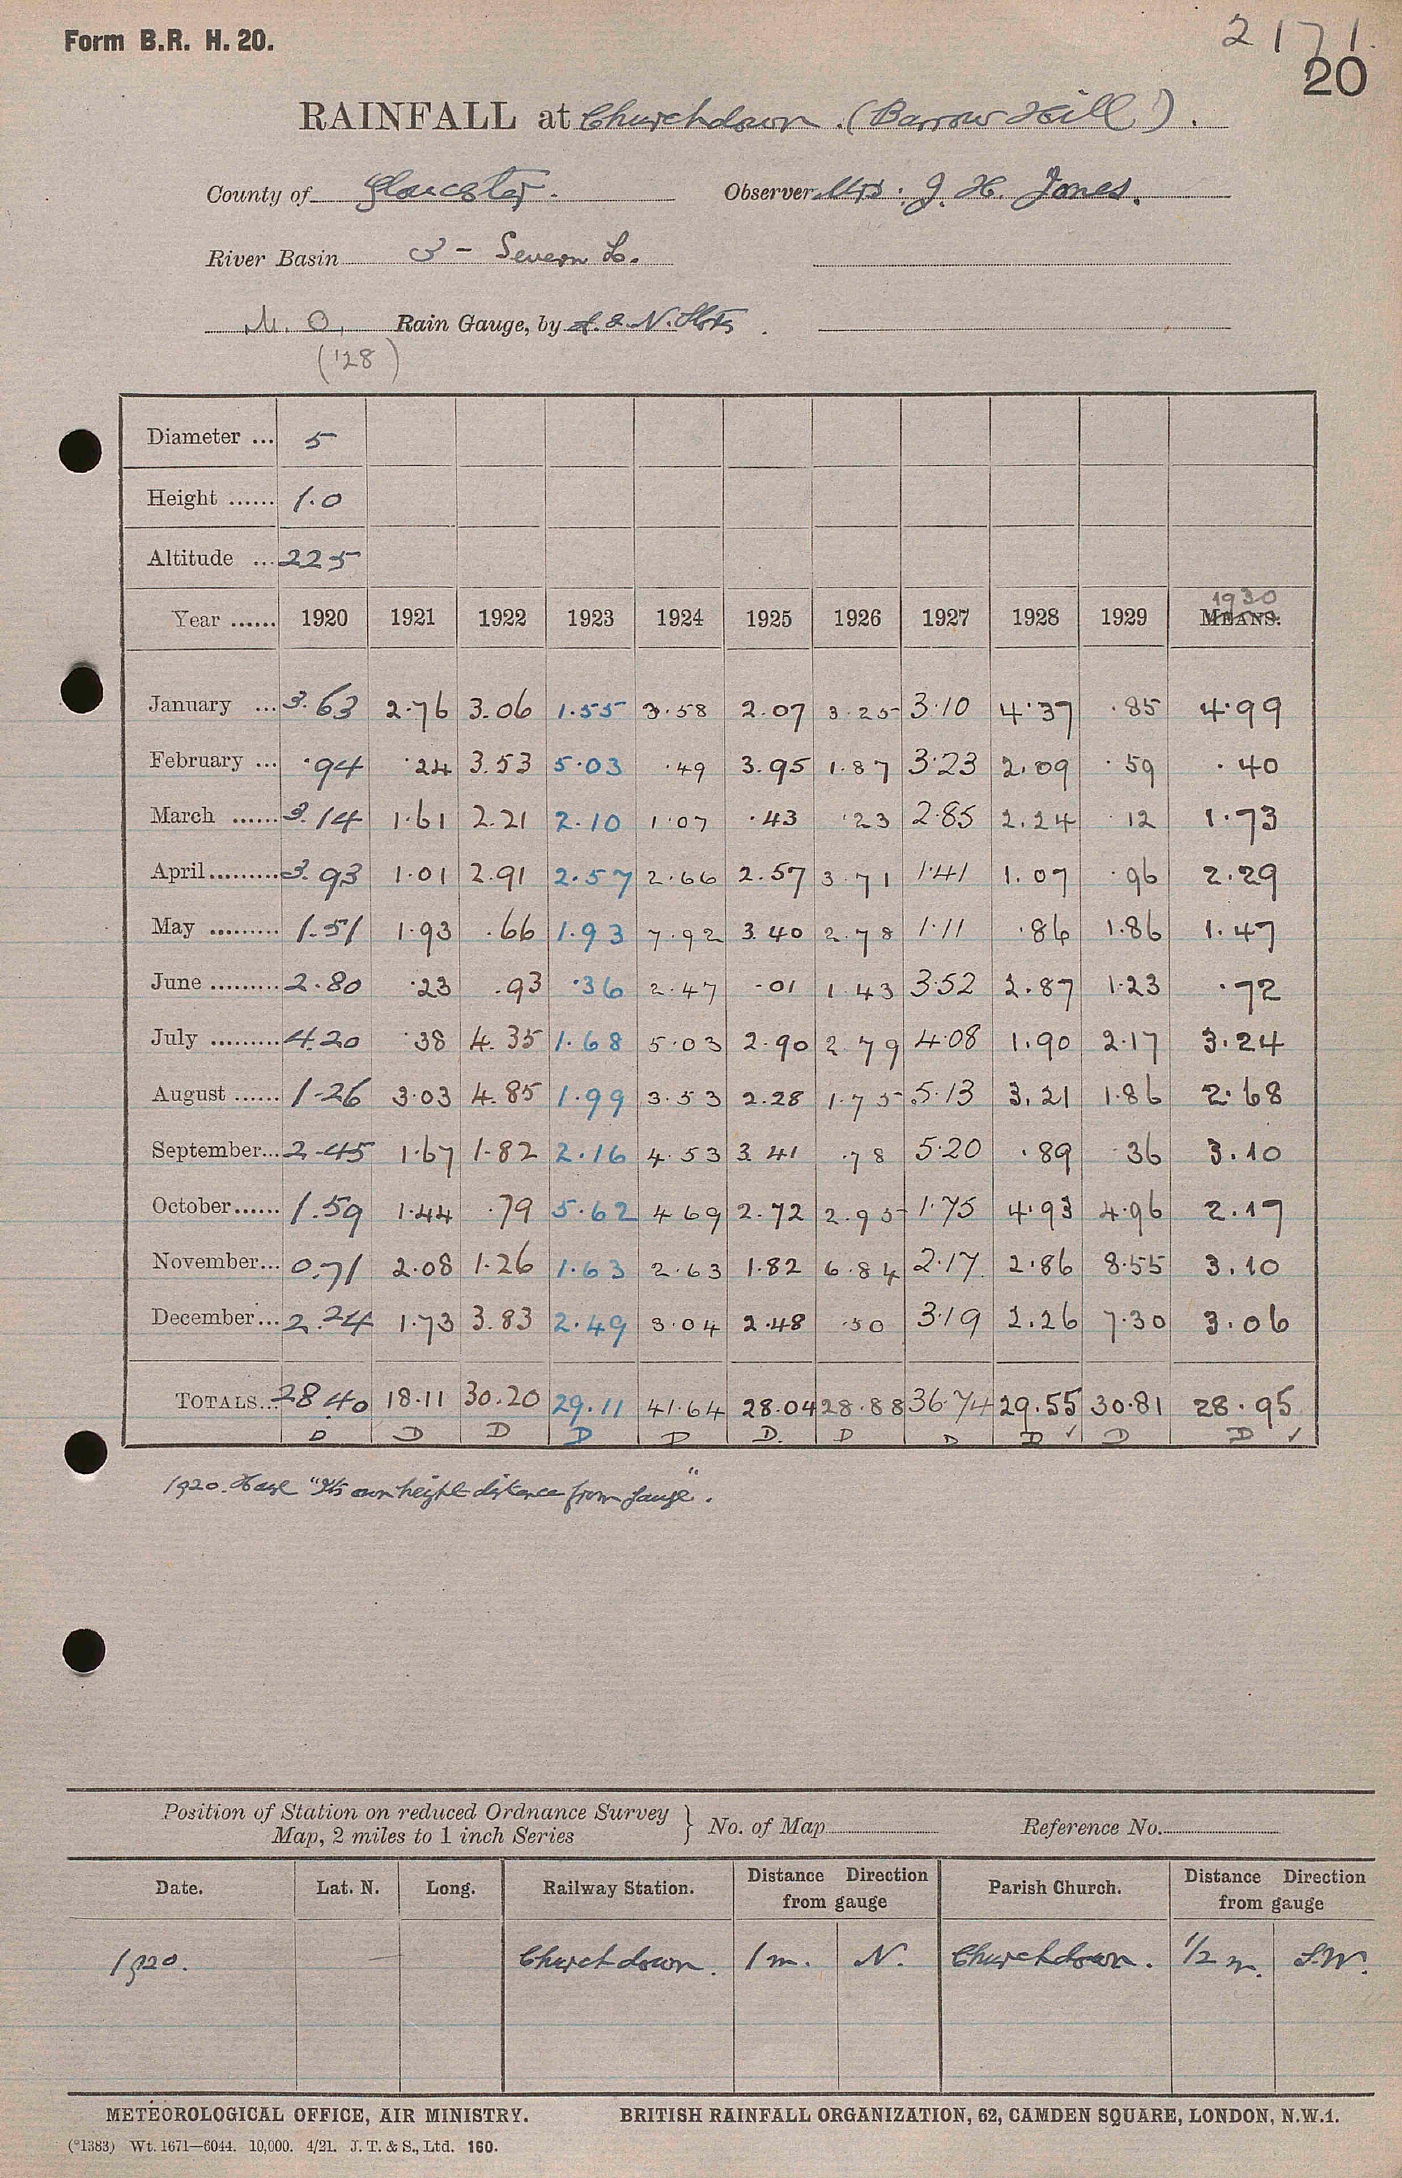 Form B.R. H. 20.
2171
20
RAINFALL at Churchdown. (Barrow Hill).
County of Gloucester. Observer Mrs. J. H. Jones.
River Basin 3 - Severn L.
M. O. Rain Gauge, by
('28)
Diameter ... 5
Height ...... 1.0
Altitude ... 225
1930
Year ...... 1920 1921 1922 1923 1924 1925 1926 1927 1928 1929 MEANS.
January ... 3.63 2.76 3.06 1.55 3.58 2.07 3.25 3.10 4.37 .85 4.99
February ... .94 .24 3.53 5.03 .49 3.95 1.87 3.23 2.09 .59 .40
March ...... 3.14 1.61 2.21 2.10 1.07 .43 .23 2.85 2.24 .12 1.73
April......... 3.93 1.01 2.91 2.57 2.66 2.57 3.71 1.41 1.07 .96 2.29
May ......... 1.51 1.93 .66 1.93 7.92 3.40 2.78 1.11 .86 1.86 1.47
June ......... 2.80 .23 .93 .36 2.47 .01 1.43 3.52 2.87 1.23 .72
July ......... 4.20 .38 4.35 1.68 5.03 2.90 2.79 4.08 1.90 2.17 3.24
August ...... 1.26 3.03 4.85 1.99 3.53 2.28 1.75 5.13 3.21 1.86 2.68
September... 2.45 1.67 1.82 2.16 4.53 3.41 .78 5.20 .89 .36 3.10
October...... 1.59 1.44 .79 5.62 4.69 2.72 2.95 1.75 4.93 4.96 2.17
November... 0.71 2.08 1.26 1.63 2.63 1.82 6.84 2.17 2.86 8.55 3.10
December... 2.24 1.73 3.83 2.49 3.04 2.48 .50 3.19 2.26 7.30 3.06
TOTALS... 28.40 18.11 30.20 29.11 41.64 28.04 28.88 36.74 29.55 30.81 28.95
D D D D D D. D D D ✓ D D ✓
1920. "Its own height distance from gauge".
Position of Station on reduced Ordnance Survey } No. of Map Reference No.
Map, 2 miles to 1 inch Series
Date. Lat. N. Long. Railway Station. Distance Direction Parish Church. Distance Direction
from gauge from gauge
1920. Churchdown. 1 m. N. Churchdown. 1/2 m. S.W.
METEOROLOGICAL OFFICE, AIR MINISTRY. BRITISH RAINFALL ORGANIZATION, 62, CAMDEN SQUARE, LONDON, N.W.1.
(*1383) Wt. 1671—6044. 10,000. 4/21. J. T. & S., Ltd. 160.